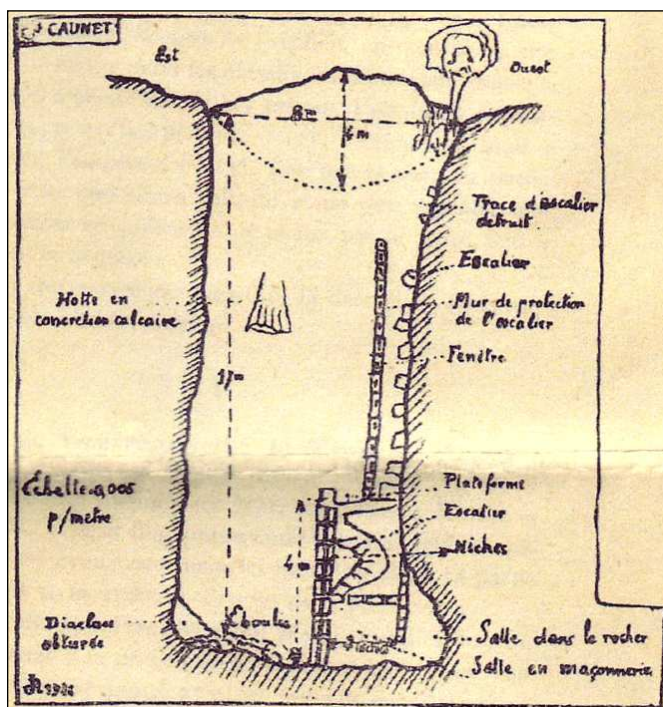 CAUNET
Est
Ouest
8m
4m
Trace d'escalier
detruit
Escalier
Mur de protection
de l'escalier
Fenêtre
Hotte en
concretion calcaire
17m
Échelle 0,005
p/mètre
Plateforme
Escalier
Niches
4m
Diaclase
obturée
Eboulis
Salle dans le rocher
Salle en maçonnerie